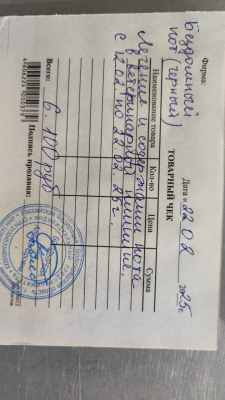 Фирма: Бездомный
кот (черный)
ТОВАРНЫЙ ЧЕК
Дата « 22 02 2025г.
Наименование товара Кол-во Цена Сумма
Лечение и содержание кота
в ветеринарной клинике.
с 12.02. по 22.02.25г.
Всего: 6.100 руб
Подпись продавца: